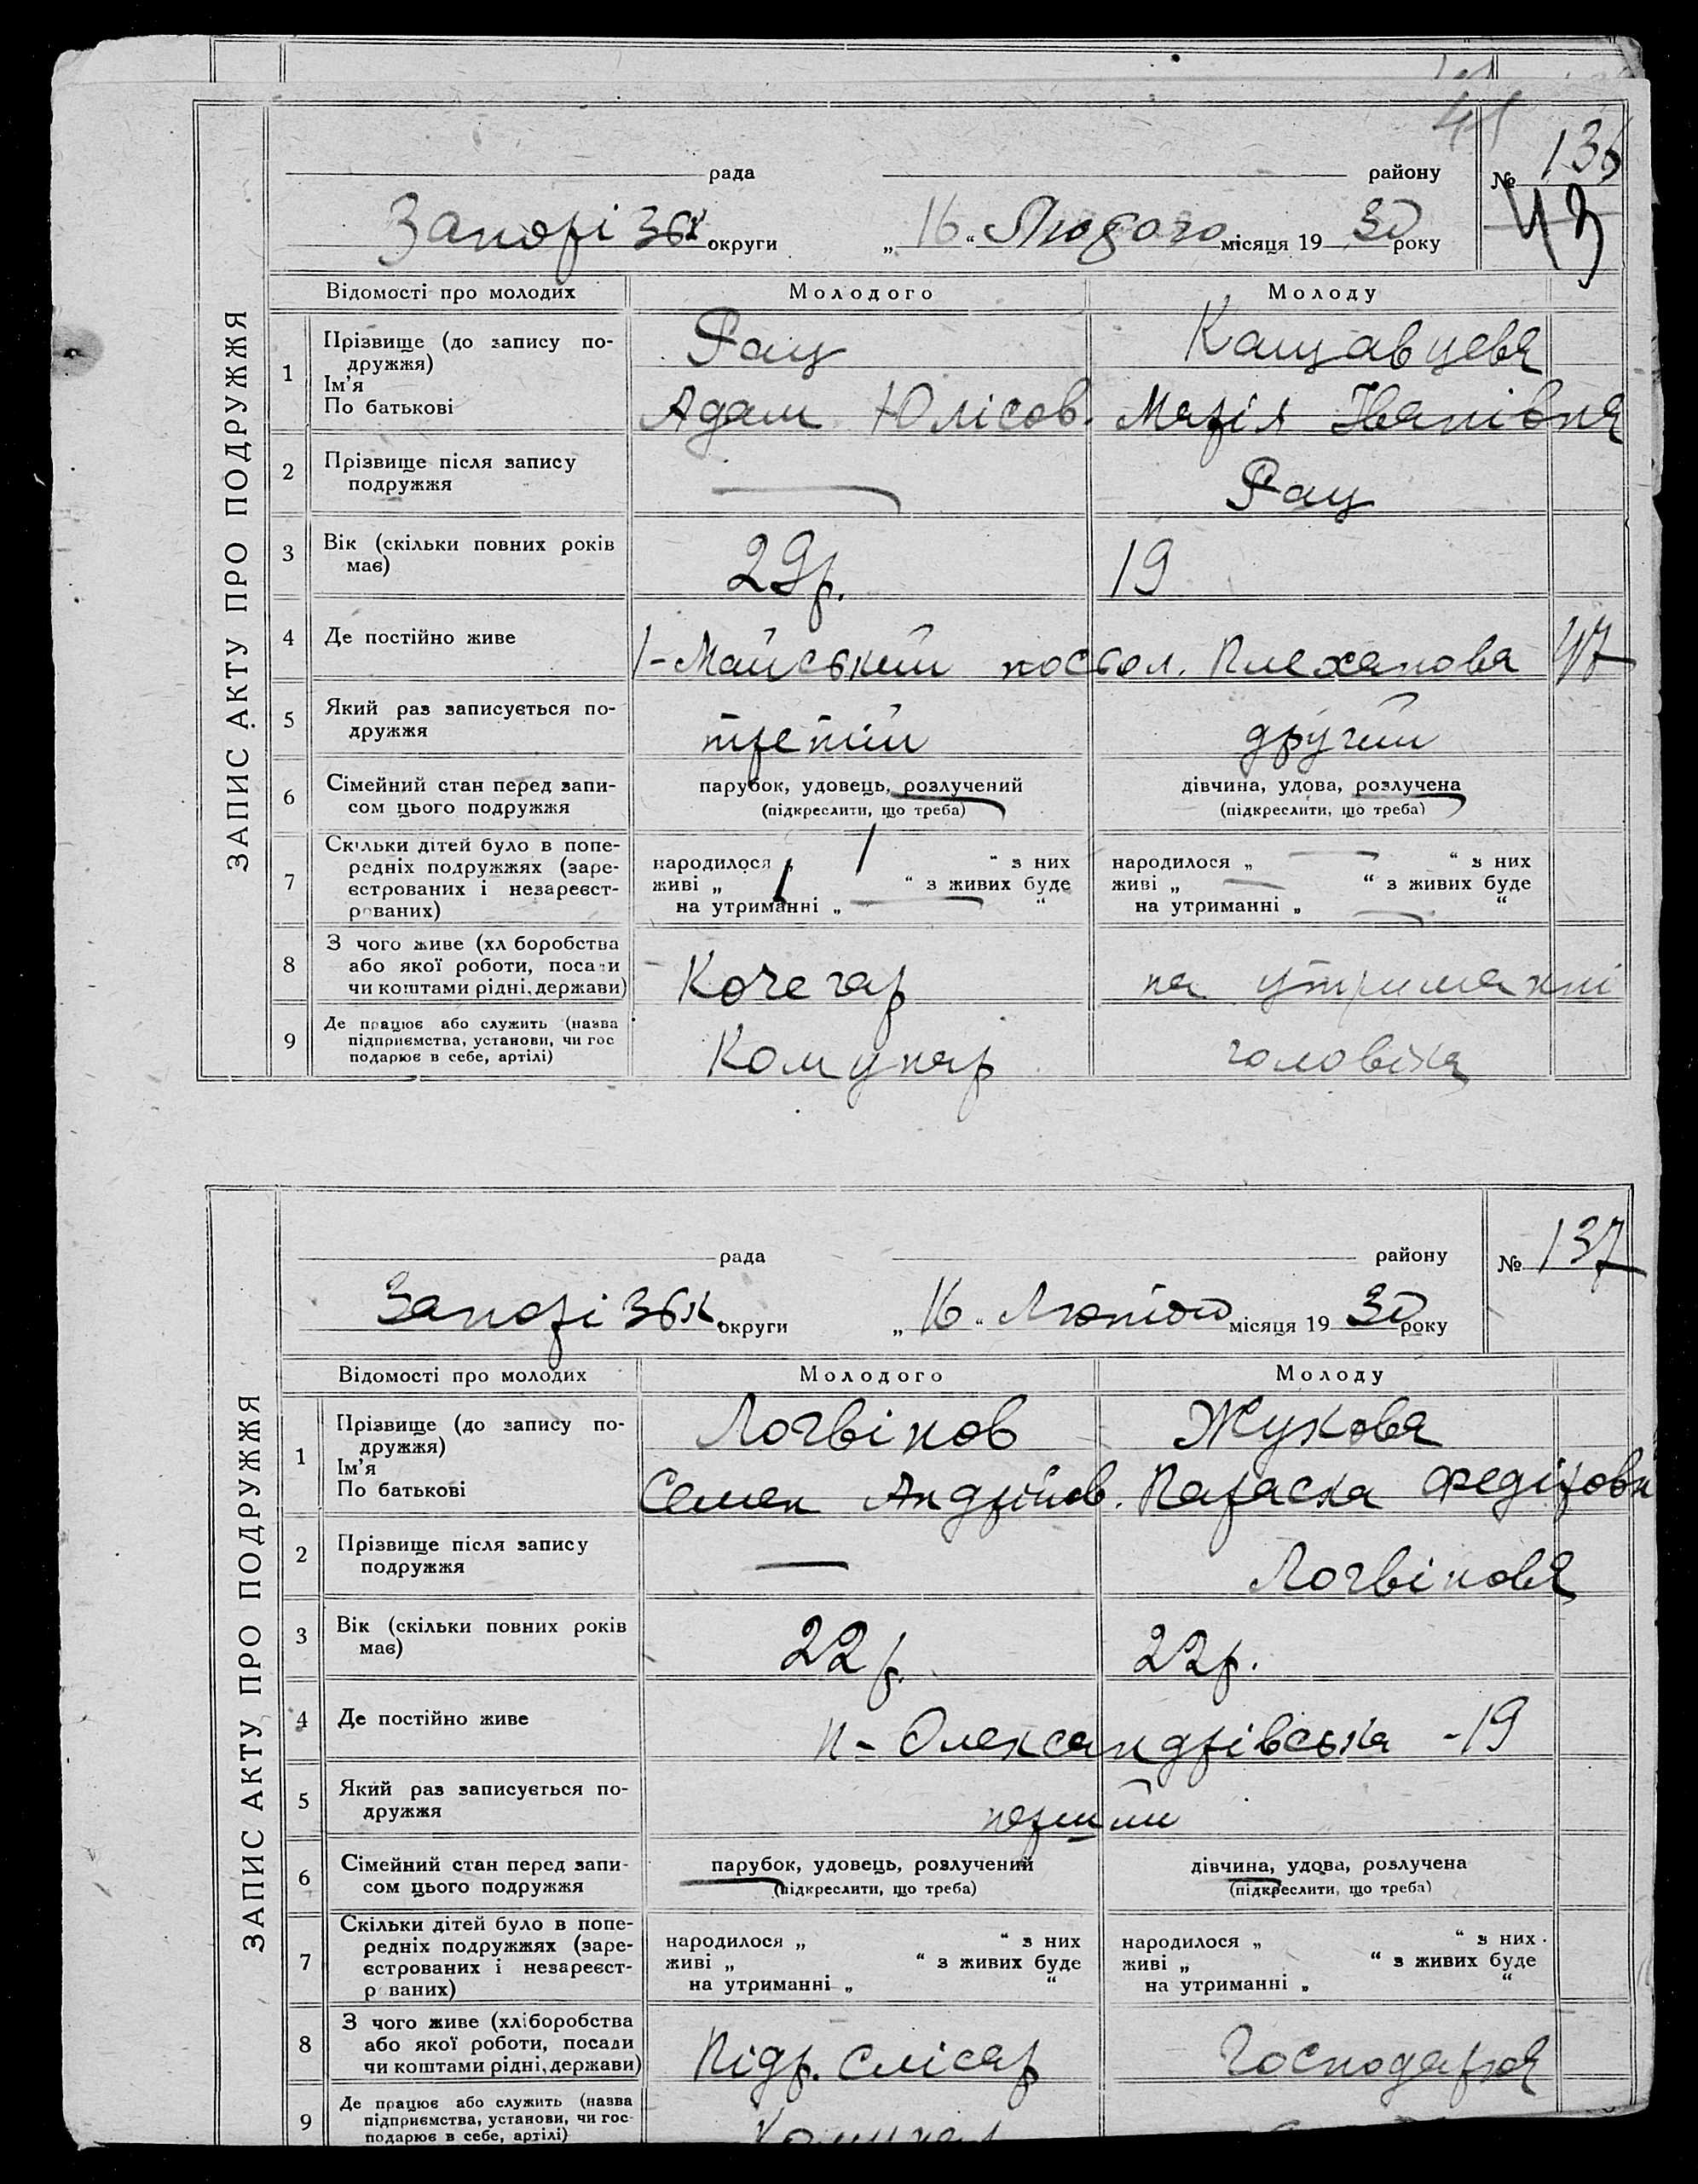 41
ЗАПИС АКТУ ПРО ПОДРУЖЖЯ
рада району № 136
43
Запорізьк округи „ 16 “ Лютого місяця 19 30 року
Відомості про молодих Молодого Молоду
1 Прізвище (до запису по-
дружжя)
Ім'я
По батькові
Рац Кащавцева
Адам Юлісов. Марія Іванівна
2 Прізвище після запису
подружжя
— Рац
3 Вік (скільки повних років
має)
29 р. 19
4 Де постійно живе
1-Майський посьол. Плеханова 47
5 Який раз записується по-
дружжя
третій другий
6 Сімейний стан перед запи-
сом цього подружжя
парубок, удовець, розлучений дівчина, удова, розлучена
(підкреслити, що треба) (підкреслити, що треба)
7 Скільки дітей було в попе-
редніх подружжях (заре-
єстрованих і незареєст-
рованих)
народилося „ 1 “ з них народилося „ — “ з них
живі „ 1 “ з живих буде живі „ — “ з живих буде
на утриманні „ — “ на утриманні „ — “
8 З чого живе (хл боробства
або якої роботи, посади
чи коштами рідні, держави)
Кочегар на утриманні
9 Де працює або служить (назва
підприємства, установи, чи гос
подарює в себе, артілі)
Комунар чоловіка
ЗАПИС АКТУ ПРО ПОДРУЖЖЯ
рада району № 137
Запорізьк округи „ 16 “ Лютого місяця 19 30 року
Відомості про молодих Молодого Молоду
1 Прізвище (до запису по-
дружжя)
Ім'я
По батькові
Логвінов Жукова
Семен Андрійов. Параска Федіровн
2 Прізвище після запису
подружжя
— Логвінова
3 Вік (скільки повних років
має)
22 р. 22 р.
4 Де постійно живе
п - Олександрівська - 19
5 Який раз записується по-
дружжя
перший
6 Сімейний стан перед запи-
сом цього подружжя
парубок, удовець, розлучений дівчина, удова, розлучена
(підкреслити, що треба) (підкреслити, що треба)
7 Скільки дітей було в попе-
редніх подружжях (заре-
єстрованих і незареєст-
р ваних)
народилося „ “ з них народилося „ “ з них
живі „ “ з живих буде живі „ “ з живих буде
на утриманні „ “ на утриманні „ “
8 З чого живе (хліборобства
або якої роботи, посади
чи коштами рідні, держави)
Підр. слісар Господарюя
9 Де працює або служить (назва
підприємства, установи, чи гос-
подарює в себе, артілі)
Комунар